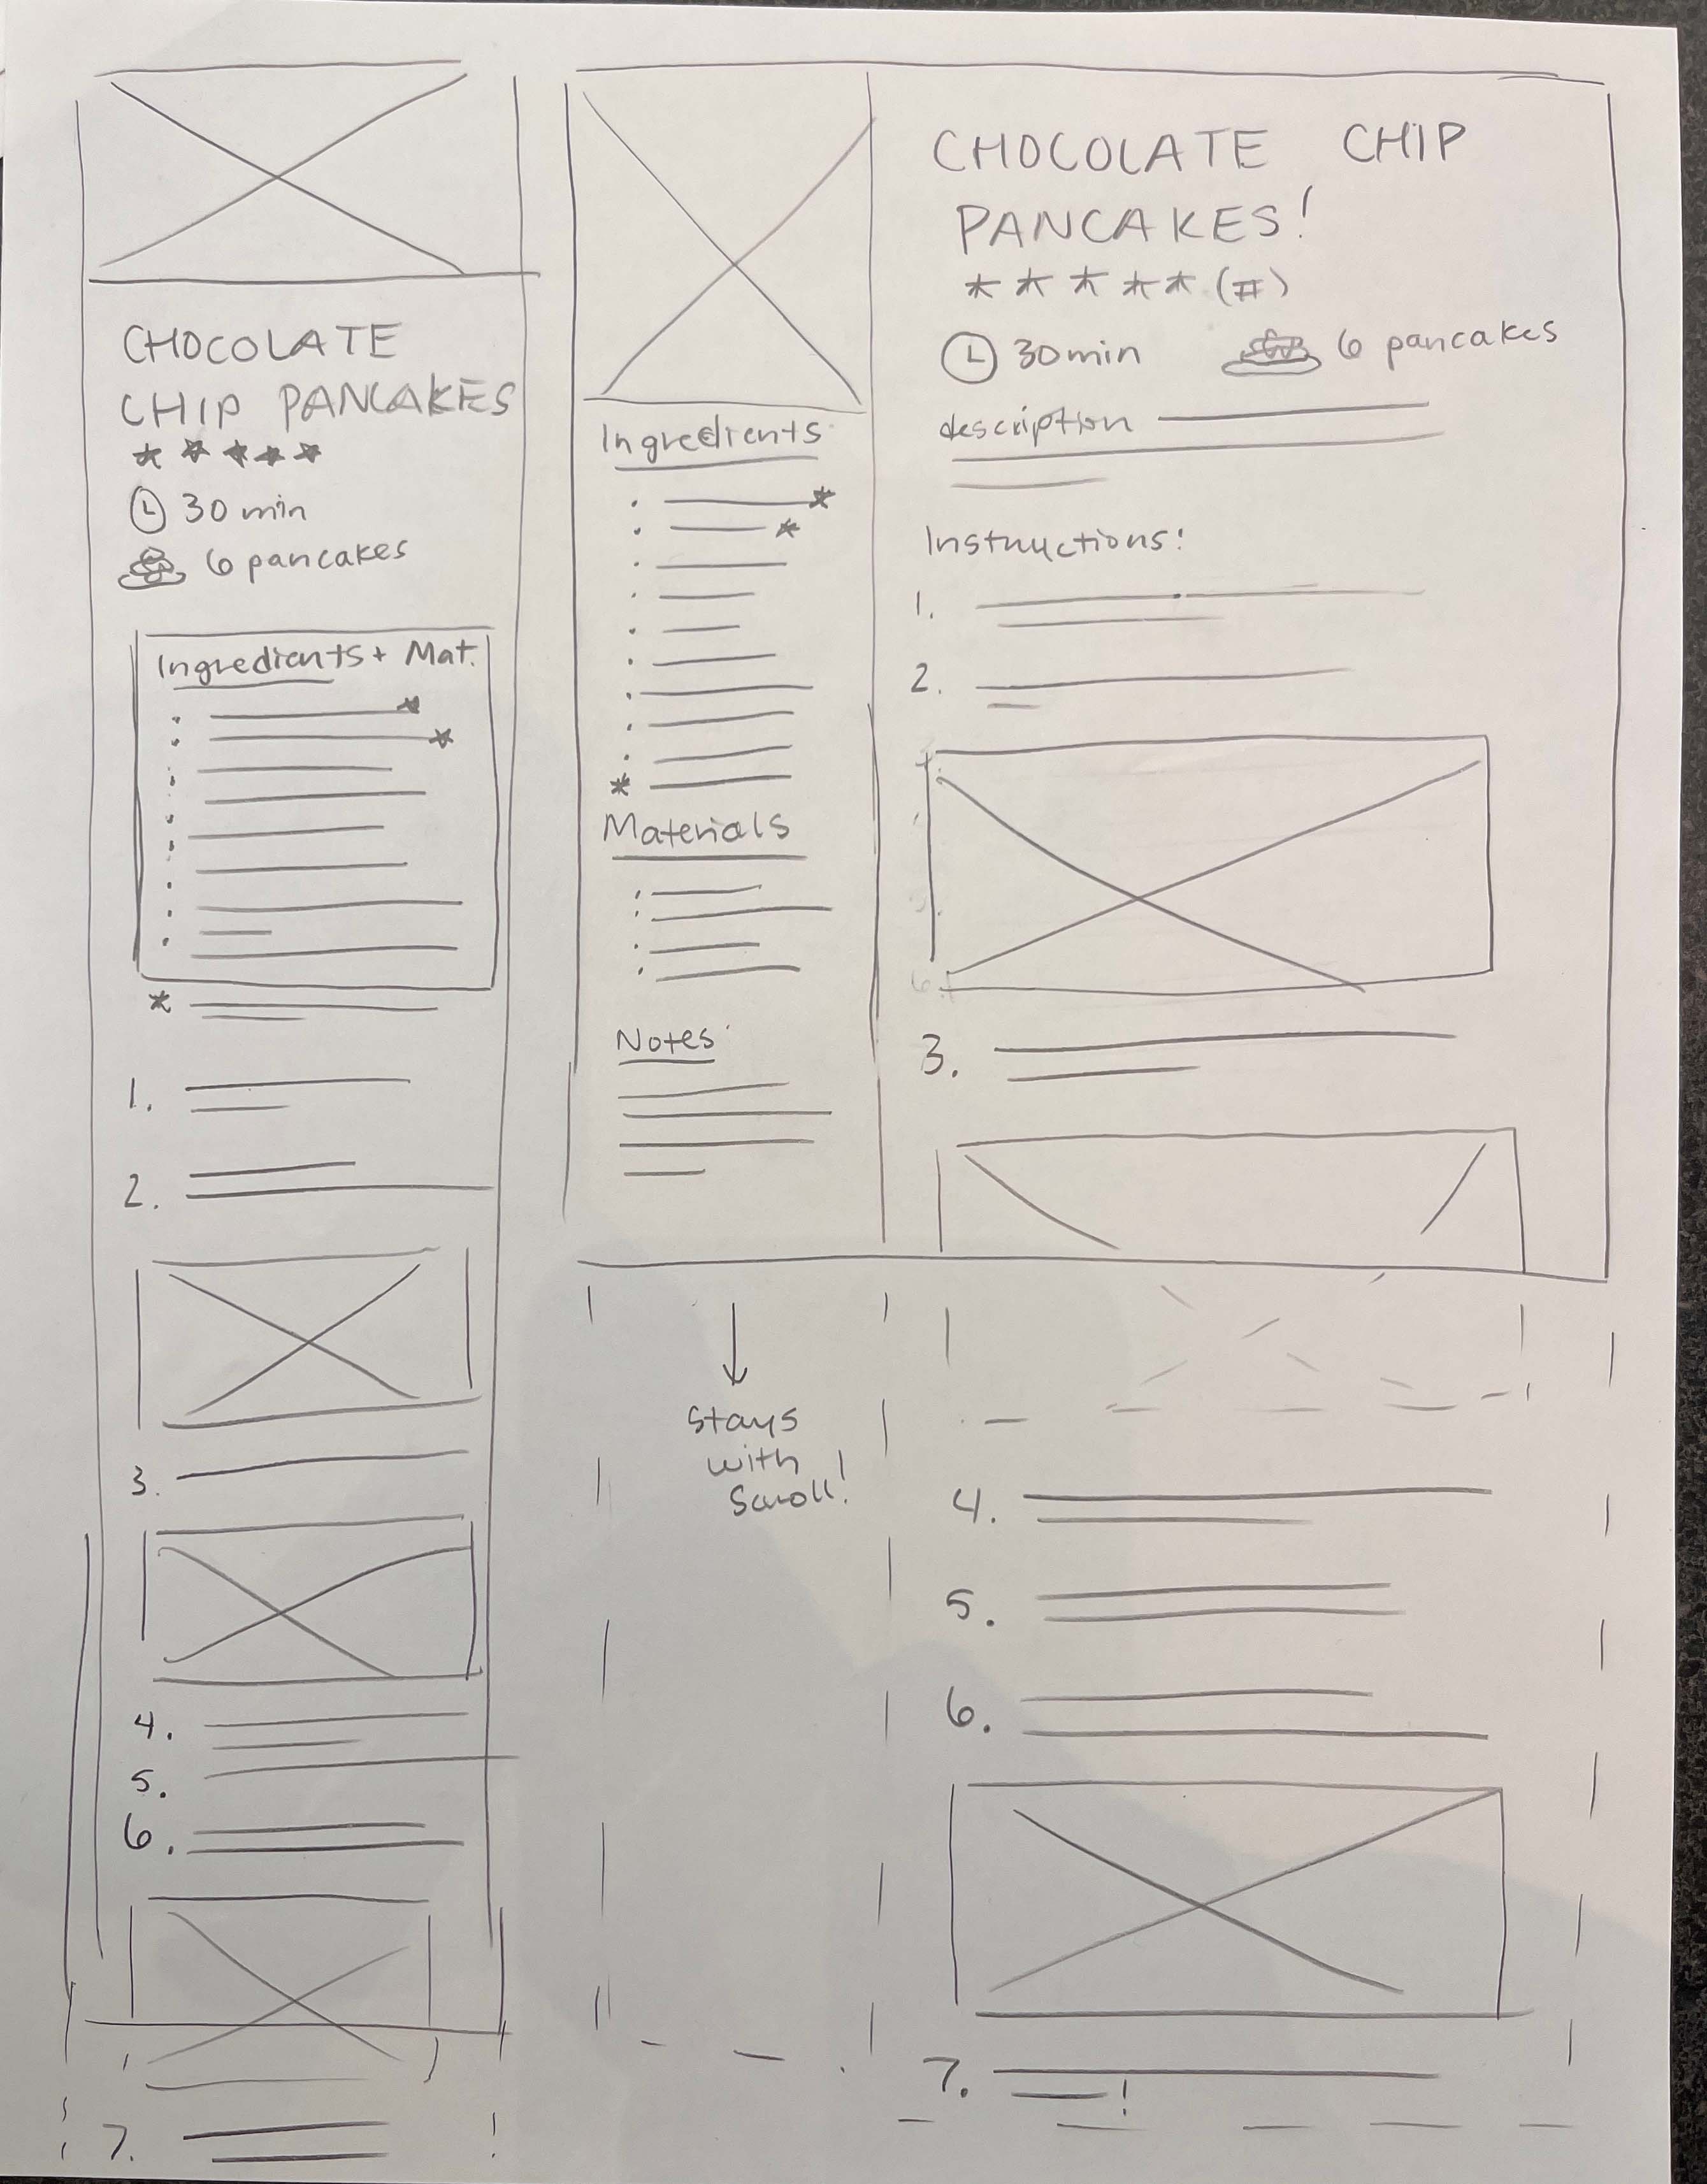 CHOCOLATE
CHIP PANCAKES
30 min
6 pancakes
Ingredients + Mat.
1.
2.
3.
4.
5.
6.
7.
Ingredients
Materials
Notes
stays
with
scroll!
CHOCOLATE CHIP
PANCAKES!
★ ★ ★ ★ ★ (#)
30min
6 pancakes
description
Instructions:
1.
2.
3.
4.
5.
6.
7.